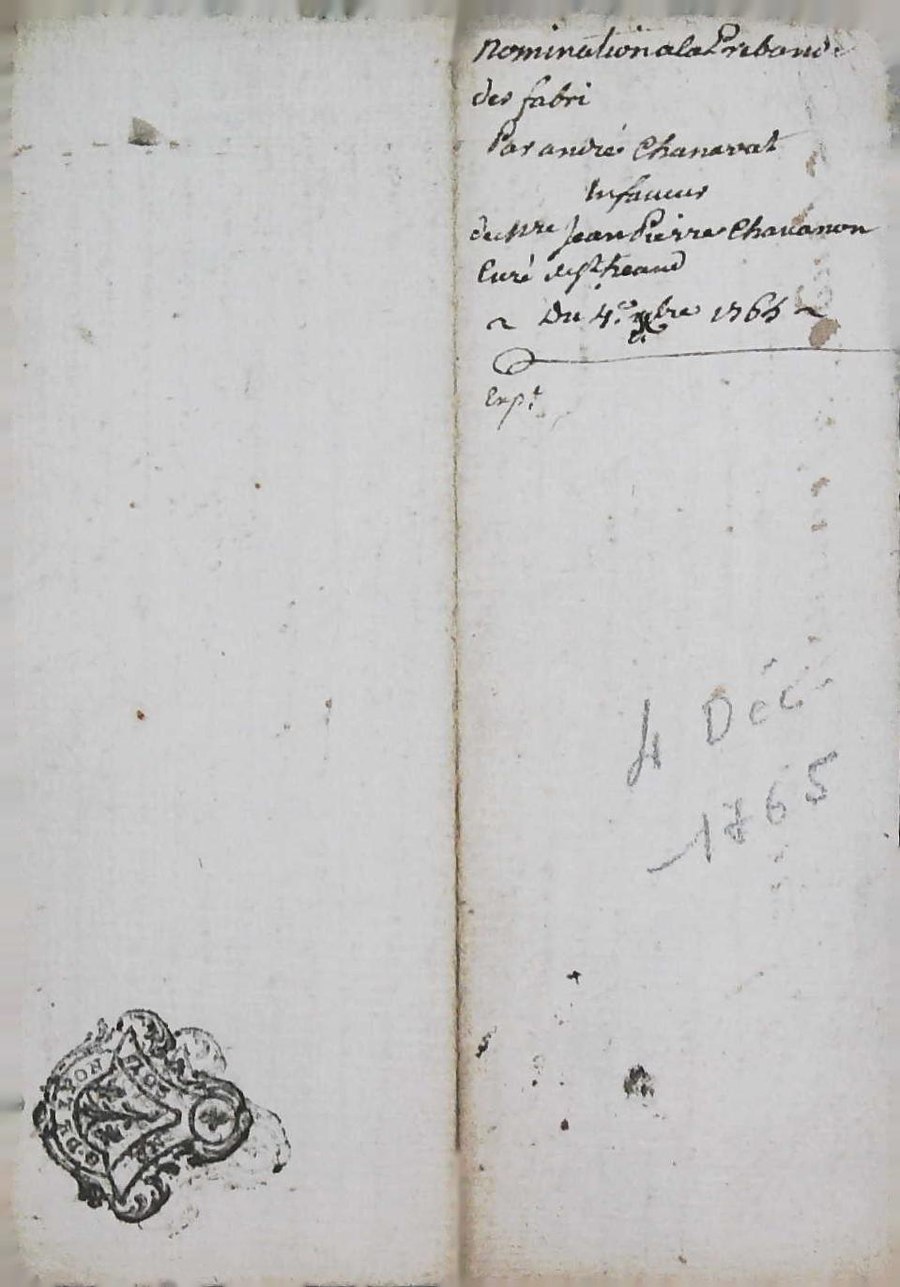 Nomination a la Prebande
des fabri
Par andré Chanavat
In faueur
de Mre Jean Pierre Chauanon
Curé de St heand
Du 4e xbre 1765
Exp.t
4 Déc
1765
G DE LYON